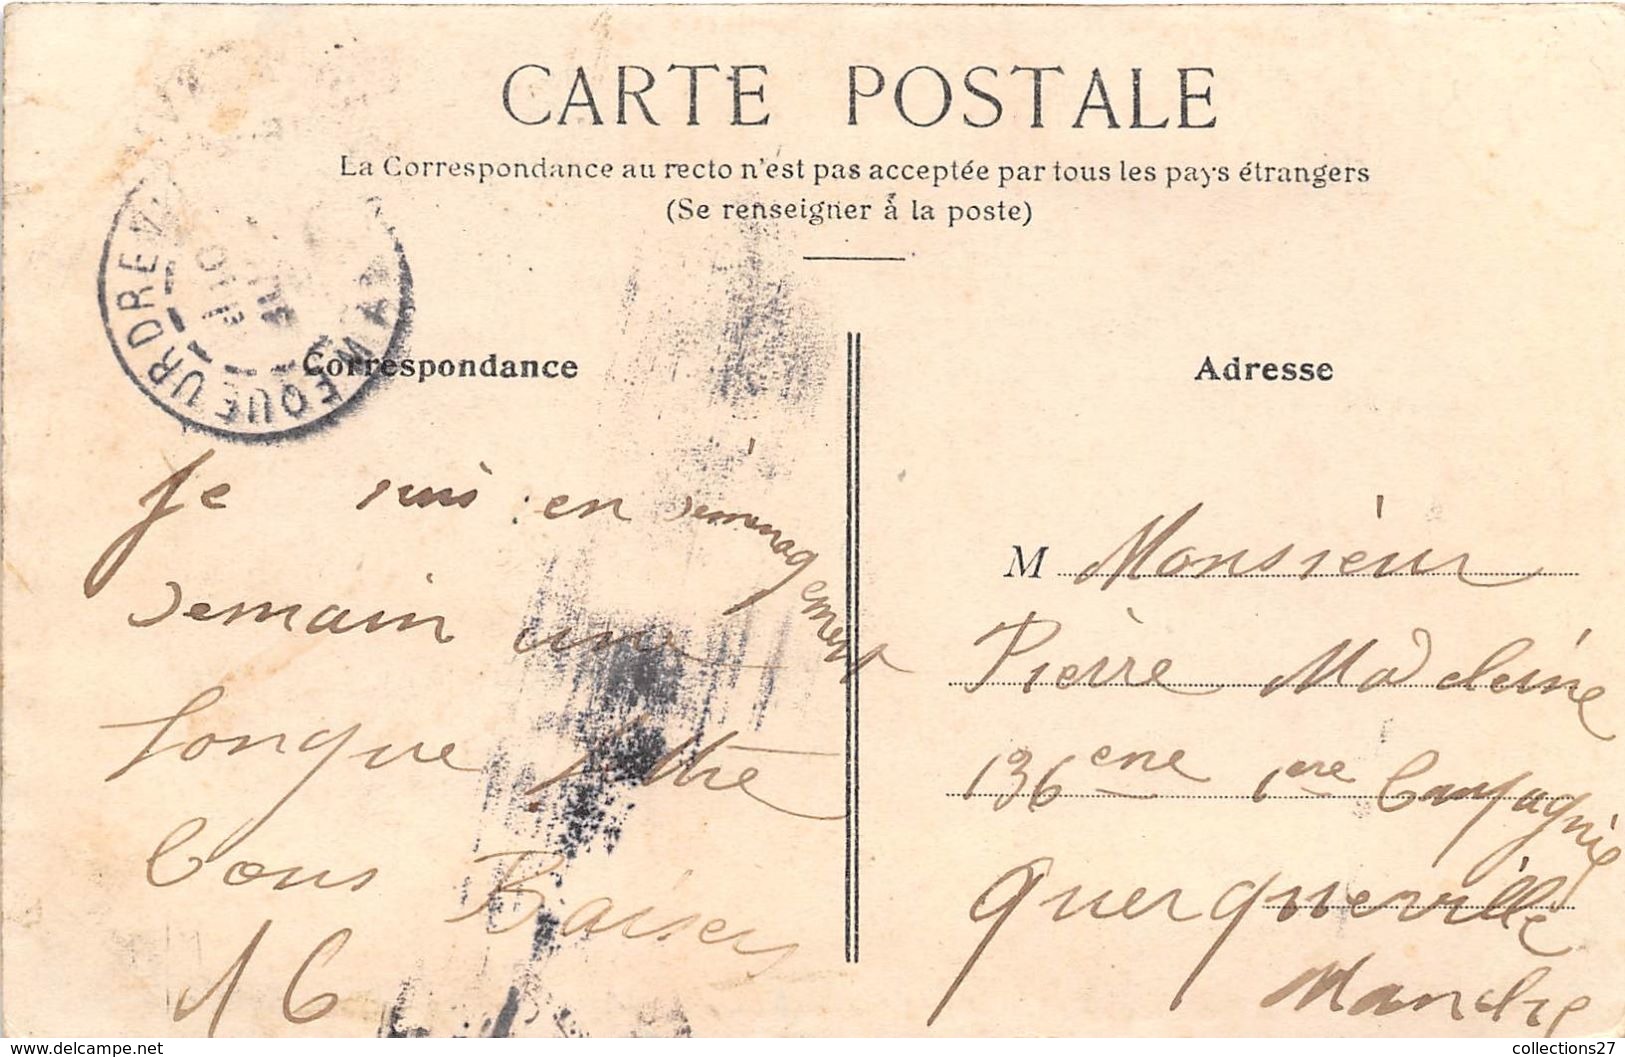 CARTE POSTALE
La Correspondance au recto n'est pas acceptée par tous les pays étrangers
(Se renseigner à la poste)
EQUEURDREV
Correspondance
Je suis en demenagement
demain une
longue lettre
Bons Baisers
Adresse
M Monsieur
Pierre Madeleine
136eme 1ere Compagnie
Querqueville
Manche
collections27